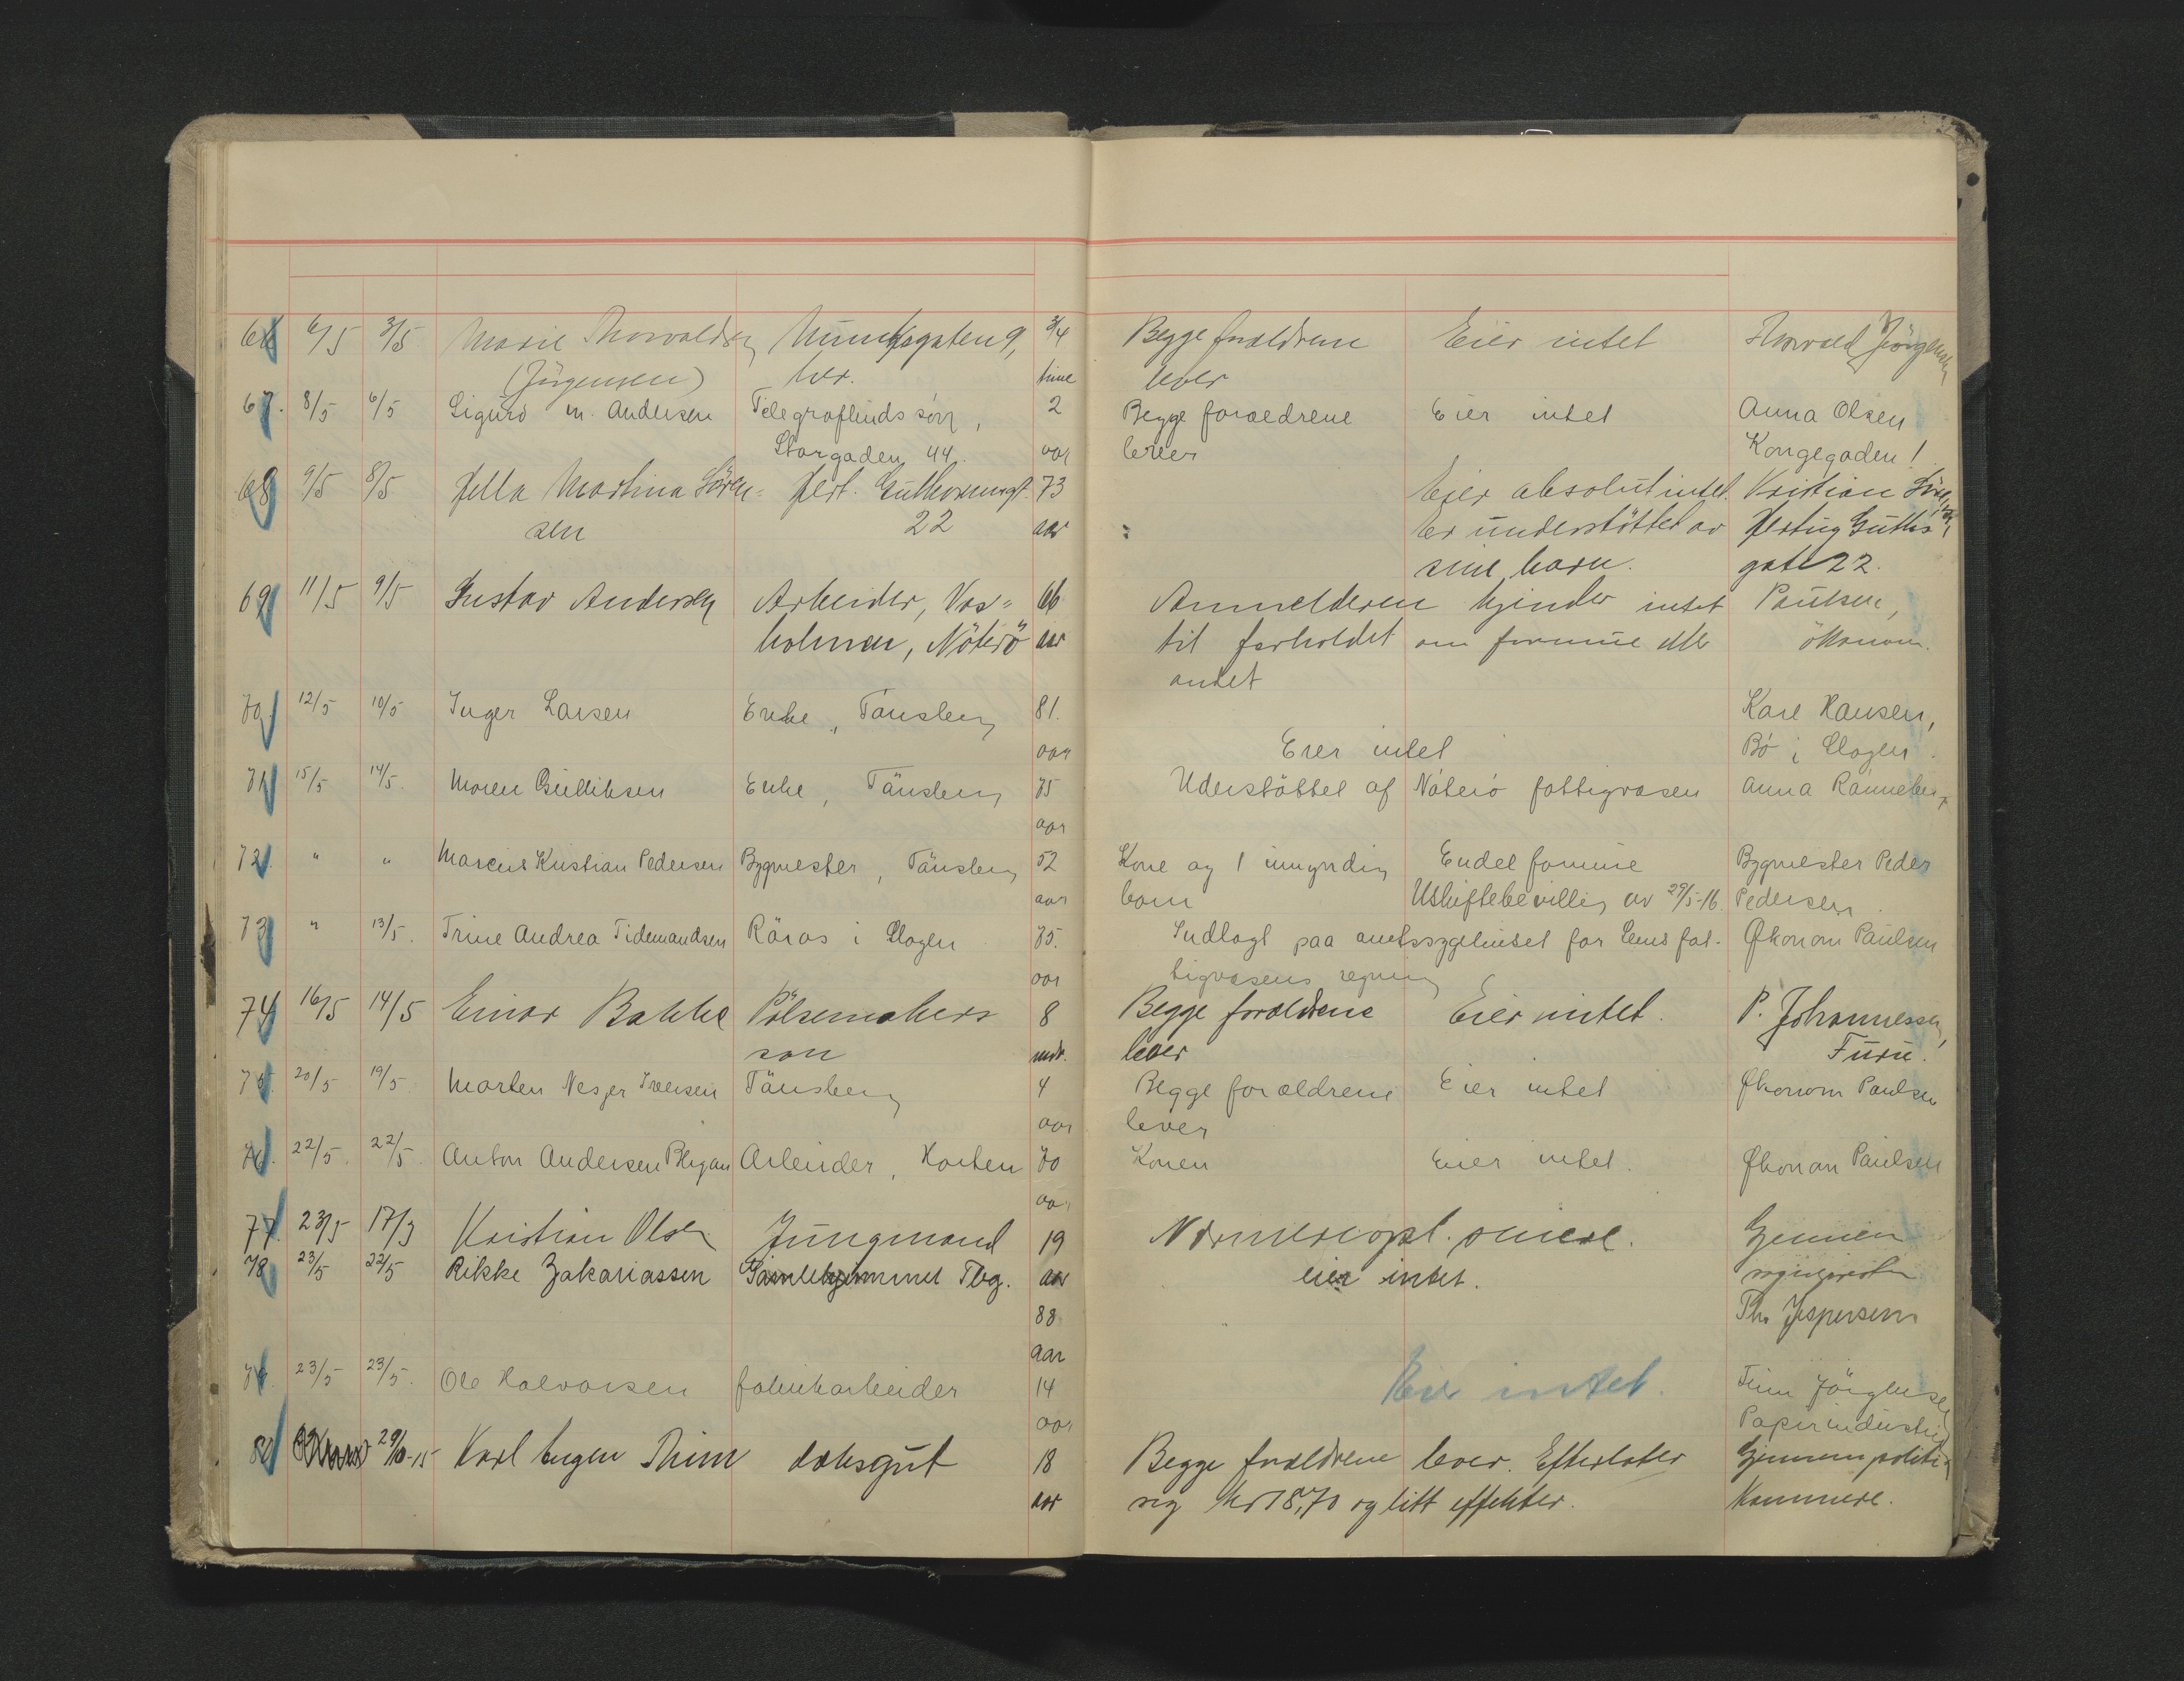 66 6/5 3/5 Marie Thorvaldsen Munkegaten 9, 3/4 Begge forældrene Eier intet Thorvald Jörgensen
(Jörgensen) her. time lever
67. 8/5 6/5 Sigurd M. Andersen Telegrafbuds sön, 2 Begge foraeldrene Eier intet Anna Olsen
Storgaden 44. aar lever Kongegaden 1
68 9/5 8/5 Hella Martina Sören= Hert. Guthormsgt. 73 Eier absolut intet. Kristian Sörensen
sen 22 aar Er understöttet av Hertug Guths
sine barn. gate 22.
69 11/5 9/5 Gustav Andersen Arbeider, Vas= 66 Anmelderen kjender intet Paulsen,
holmen, Nöterö aar til forholdet om formue eller ökonom.
andet
70 12/5 10/5 Inger Larsen Enke, Tönsberg 81. Karl Hansen,
aar Eier intet Bö i Slagen.
71 15/5 14/5. Maren Gulliksen Enke, Tönsberg 75 Uderstöttet af Nöterö fattigvæsen Anna Rönneberg
aar
72. " " Marcus Kristian Pedersen Bygmester, Tönsberg 52 Kone og 1 umyndig Endel formue Bygmester Peder
aar barn Uskiftebevilling av 29/5-16. Pedersen.
73 " 13/5. Trine Andrea Tidemandsen Råras i Slagen 75. Indlagt paa amtssygehuset for Sems fat- Økonom Paulsen
aar tigvæsens regning
74 16/5 14/5 Einar Bakke Pölsemakers 8 Begge forældrene Eier intet. P. Johannessen,
son mdr. lever Furu.
75. 20/5 19/5 Morten Nesjer Iversen Tönsberg 4 Begge forældrene Eier intet Økonom Paulsen
aar lever
76. 22/5. 22/5. Anton Andersen Arbeider, Horten 70 Konen Eier intet. Økonom Paulsen
aar
77. 23/5 17/3 Kristian Olsen Jungmand 19 Nærmere opl. Gjennem
78 23/5 22/5 Rikke Zakariassen Gamlehjemmet Tbg. aar eier intet.
88 Th. Jespersen
aar
79. 23/5 23/5. Ole Halvorsen fabrikarbeider 14 Eier intet. Finn Jörgensen
aar Papirindustri
80 29/10-15 Karl Eugen Thim dæksgut 18 Begge forældrene lever. Efterlater Gjennem politi-
aar sig kr 18,70 og litt effekter. kammeret.